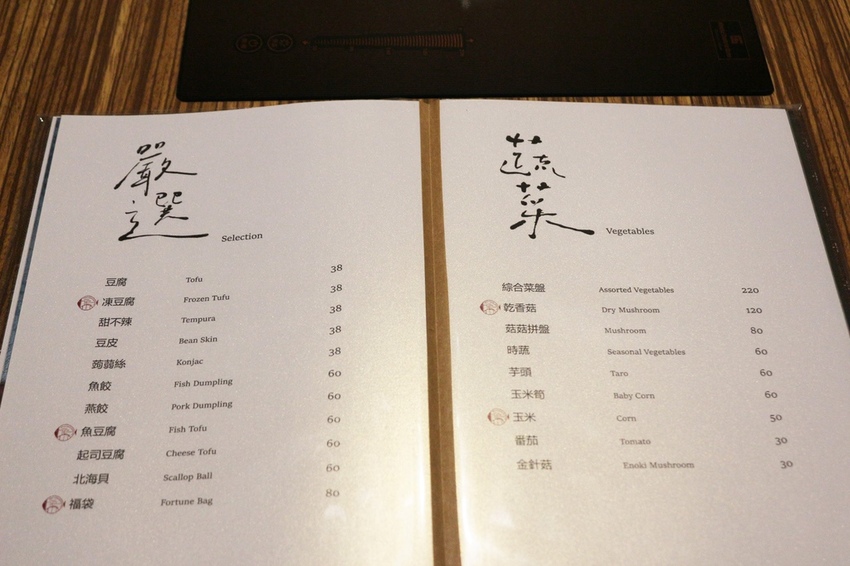 嚴選 Selection
豆腐 Tofu 38
凍豆腐 Frozen Tufu 38
甜不辣 Tempura 38
豆皮 Bean Skin 38
蒟蒻絲 Konjac 38
魚餃 Fish Dumpling 60
燕餃 Pork Dumpling 60
魚豆腐 Fish Tofu 60
起司豆腐 Cheese Tofu 60
北海貝 Scallop Ball 60
福袋 Fortune Bag 80
蔬菜 Vegetables
綜合菜盤 Assorted Vegetables 220
乾香菇 Dry Mushroom 120
菇菇拼盤 Mushroom 80
時蔬 Seasonal Vegetables 60
芋頭 Taro 60
玉米筍 Baby Corn 60
玉米 Corn 50
番茄 Tomato 30
金針菇 Enoki Mushroom 30